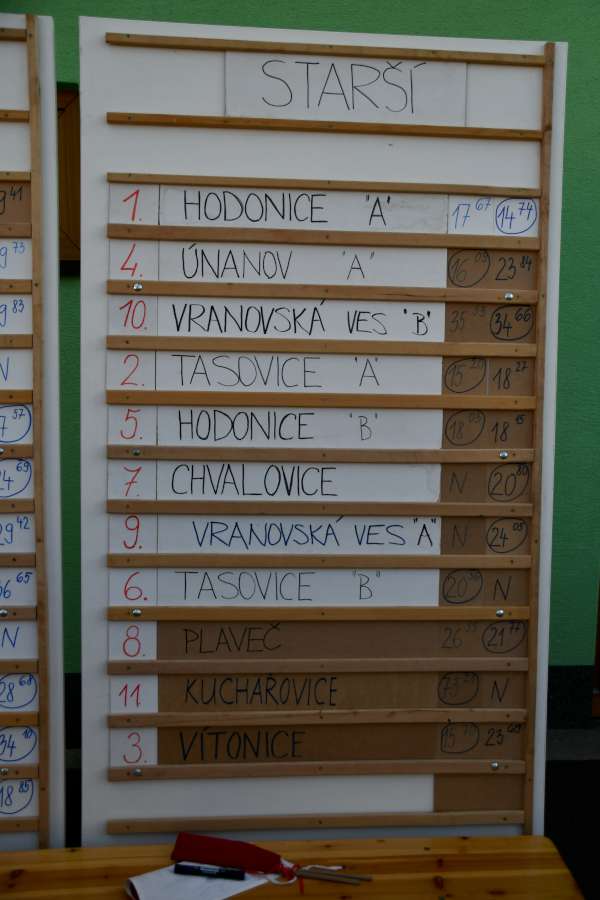 STARŠÍ
1. HODONICE "A" 17 67 14 74
4. ÚNANOV "A" 16 03 23 84
10. VRANOVSKÁ VES "B" 35 53 34 66
2. TASOVICE "A" 18 27
5. HODONICE "B" 18 03 18
7. CHVALOVICE N 20 80
9. VRANOVSKÁ VES "A" N 24 05
6. TASOVICE "B" 20 N
8. PLAVEČ 26 21 77
11 KUCHAŘOVICE N
3. VÍTONICE 23
9 41
9 73
9 83
N
7 57
24 69
29 42
36 65
N
28 68
34 10
18 85